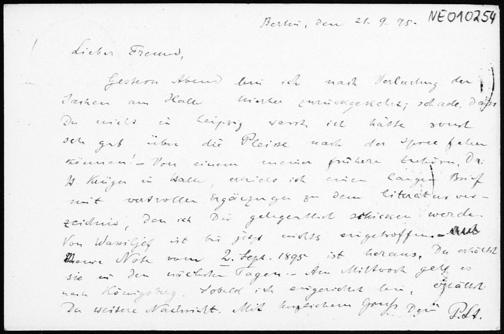 Berlin, den 21.9.95.
NE010254
Lieber Freund,
Gestern Abend bin ich nach Verladung der
Sachen aus Halle hierher zurückgekehrt; schade, dass
Du nicht in Leipzig warst, ich hätte sonst
sehr gut über die Pleisse nach der Spree fahren
können! – Von einem meiner früheren Dr.
Krüger in Halle, ich einen langen Brief
mit wertvollen Ergänzungen zu dem Literaturver-
zeichnis, den ich Dir gelegentlich schicken werde.
Von Wassiljef ist bis jetzt nichts eingetroffen. –
Note vom 2. Sept. 1895 ist heraus, Du erhältst
sie in den nächsten Tagen. – Am Mittwoch geht es
nach Königsberg. Sobald ich eingerichtet bin, erhältst
Du weitere Nachricht. Mit herzlichem Gruss Dein P.St.